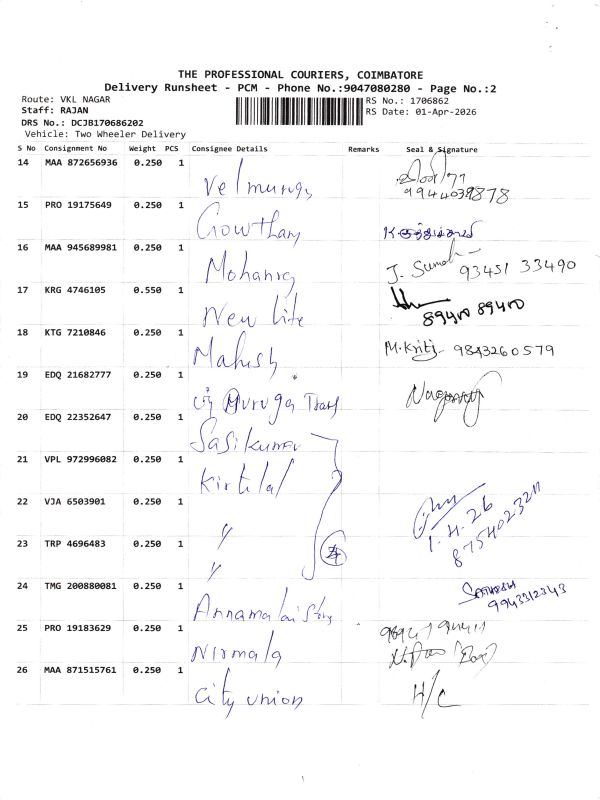 THE PROFESSIONAL COURIERS, COIMBATORE
Delivery Runsheet - PCM - Phone No.:9047080280 - Page No.:2
Route: VKL NAGAR
Staff: RAJAN
DRS No.: DCJB170686202
Vehicle: Two Wheeler Delivery
RS No.: 1706862
RS Date: 01-Apr-2026
S No Consignment No Weight PCS Consignee Details Remarks Seal & Signature
14 MAA 872656936 0.250 1
Velmurugn 9944039878
15 PRO 19175649 0.250 1
Gowtham
16 MAA 945689981 0.250 1
Mohanrg J. Sumathi 93451 33490
17 KRG 4746105 0.550 1
New lite 89400 89400
18 KTG 7210846 0.250 1
Mahesh M.Kritj 9843260579
19 EDQ 21682777 0.250 1
Muruga Trans
20 EDQ 22352647 0.250 1
Sasikumar
21 VPL 972996082 0.250 1
Kirtilal
22 VJA 6503901 0.250 1
" 1.4.26
8754023211
23 TRP 4696483 0.250 1
" 4
24 TMG 200880081 0.250 1
Annamalai Story Sathish
9943312343
25 PRO 19183629 0.250 1
Nirmala
26 MAA 871515761 0.250 1
City union H/C